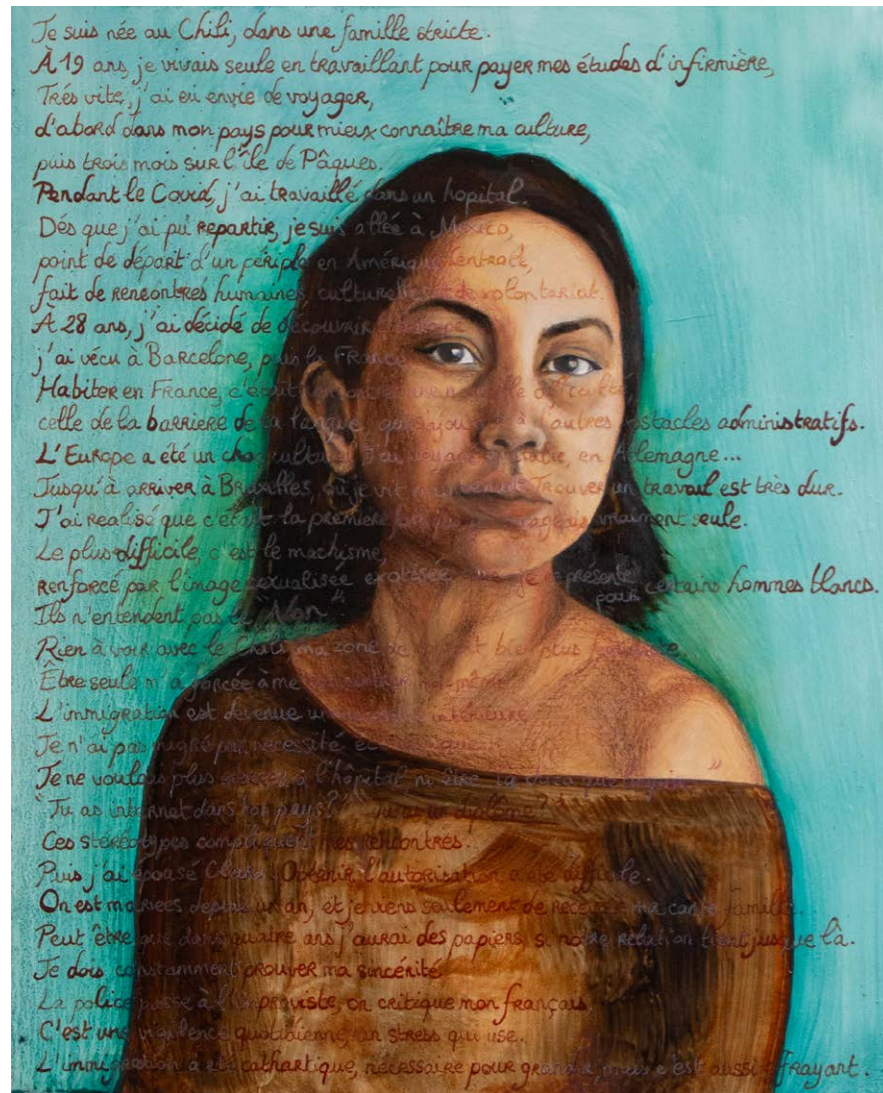 Je suis née au Chili, dans une famille stricte.
À 19 ans, je vivais seule en travaillant pour payer mes études d'infirmière,
Trés vite, j'ai eu envie de voyager,
d'abord dans mon pays pour mieux connaître ma culture,
puis trois mois sur l'île de Pâques.
Pendant le Covid, j'ai travaillé dans un hopital.
Dés que j'ai pu repartir, je suis allée à Mexico,
point de départ d'un périple en Amérique Centrale,
fait de rencontres humaines, culturelles de volontariat.
À 28 ans, j'ai décidé de découvrir
j'ai vécu à Barcelone, puis la France
Habiter en France, c'était
celle de la barriere de la langue, autres obstacles administratifs.
L'Europe a été un choc culturel J'ai voyagé en Allemagne...
Jusqu'à arriver à Bruxelles, où je vit maintenant Trouver un travail est très dur.
J'ai realisé que c'était la premiere vraiment seule.
Le plus difficile, c'est le machisme,
renforcé par l'image sexualisée exotisée que je représente pour certains hommes blancs.
Ils n'entendent pas le "Non"
Rien à voir avec le Chili ma zone de bien plus
Être seule m'a forcée à me moi-même
L'immigration est devenue intérieure
Je n'ai pas migré par necessité
Je ne voulais plus à l'hôpital ni être "la
"Tu as internet dans ton pays?" un diplôme?
Ces stéréotypes compliquent mes rencontres.
Puis j'ai épousé Obtenir l'autorisation a été difficile.
On est mariées depuis un an, et je viens seulement de recevoir ma carte famille.
Peut être que dans quatre ans j'aurai des papiers, si notre relation tient jusque là.
Je dois constamment prouver ma sincérité
La police passe à l'improviste, on critique mon français
C'est une vigilence quotidienne, un stress qui use.
L'immigration a été cathartique, nécessaire pour grandir, mais c'est aussi effrayant.